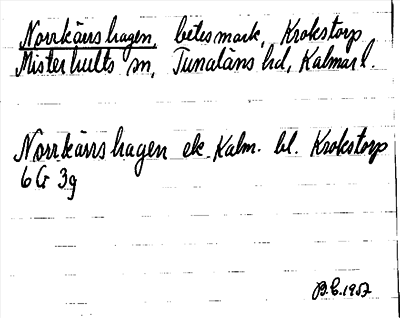 Norrkärrshagen, betesmark, Krokstorp
Misterhults sn, Tunaläns hd, Kalmar l.
Norrkärrshagen ek. Kalm. bl. Krokstorp
6 G 3g
B.E. 1957